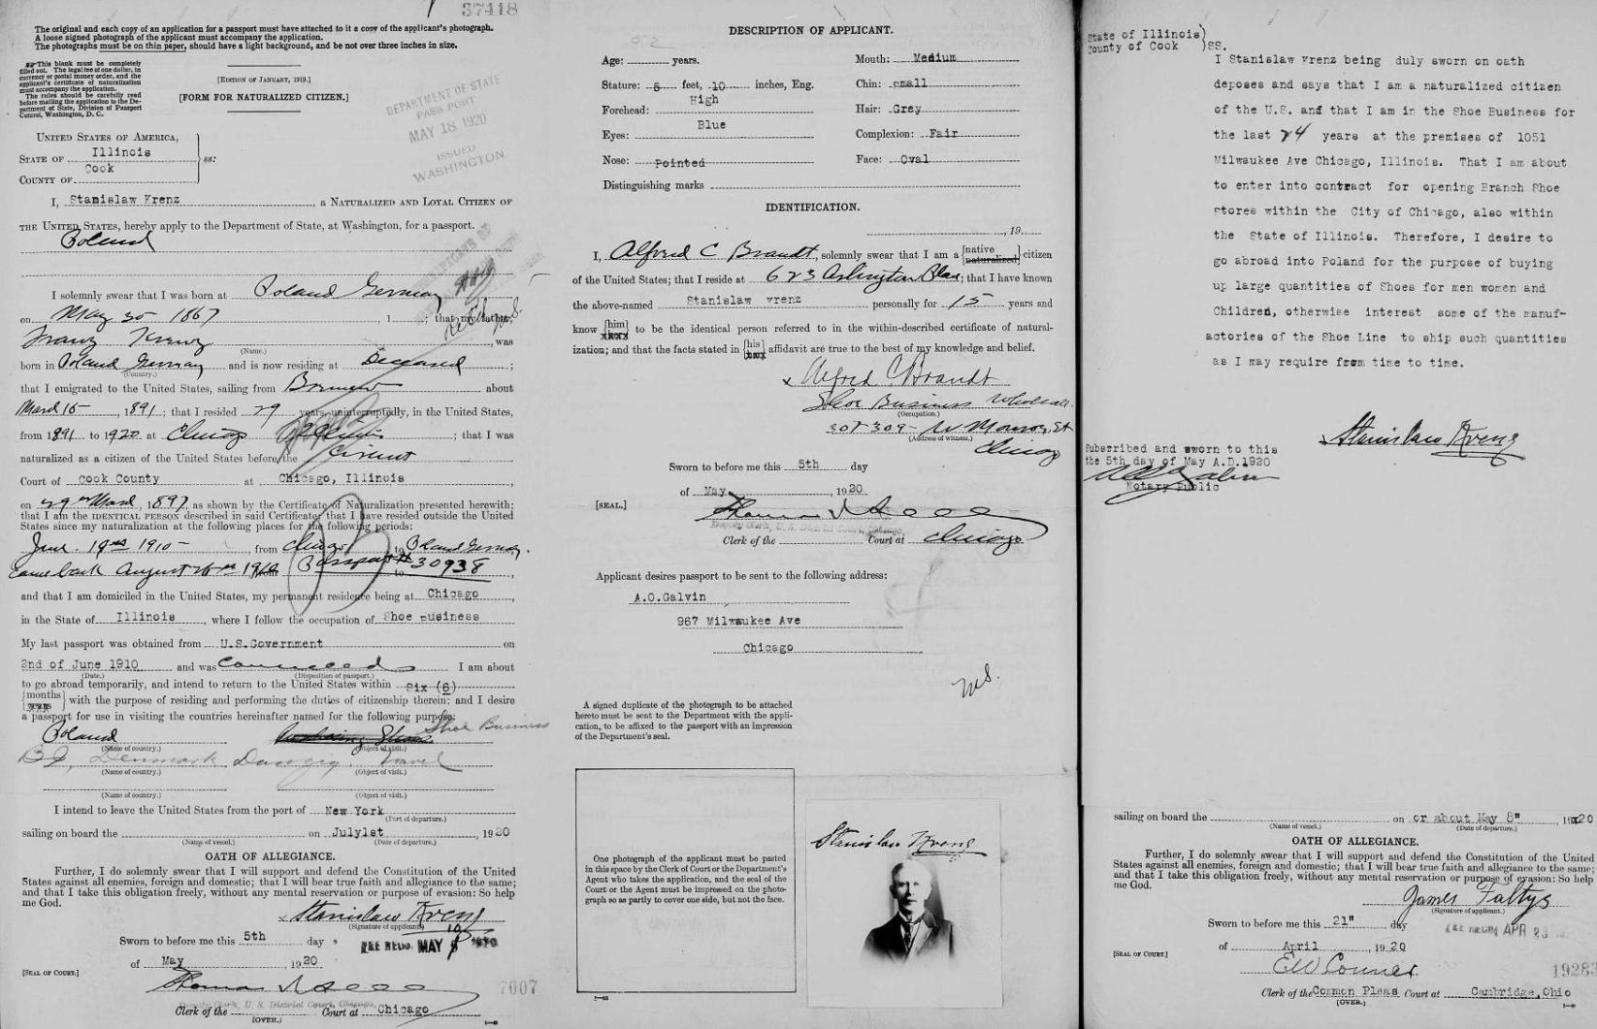 37418
The original and each copy of an application for a passport must have attached to it a copy of the applicant's photograph.
A loose signed photograph of the applicant must accompany the application.
The photographs must be on thin paper, should have a light background, and be not over three inches in size.
This blank must be completely filled out. The legal fee of one dollar, in currency or postal money order, and the applicant's certificate of naturalization must accompany the application.
The rules should be carefully read before mailing the application to the Department of State, Division of Passport Control, Washington, D. C.
[EDITION OF JANUARY, 1919.]
[FORM FOR NATURALIZED CITIZEN.]
DEPARTMENT OF STATE
PASSPORT
MAY 18 1920
ISSUED
WASHINGTON
UNITED STATES OF AMERICA,
STATE OF Illinois
ss:
COUNTY OF Cook
I, Stanislaw Krenz, a NATURALIZED AND LOYAL CITIZEN OF
THE UNITED STATES, hereby apply to the Department of State, at Washington, for a passport.
Poland
I solemnly swear that I was born at Poland Germany
on May 30 - 1867, 1; that my father,
Franz Krenz, was
(Name.)
born in Poland Germany and is now residing at Deceased;
(Country.)
that I emigrated to the United States, sailing from Bremen about
March 15, 1891; that I resided 29 years, uninterruptedly, in the United States,
from 1891 to 1920 at Chicago Illinois; that I was
naturalized as a citizen of the United States before the Circuit
Court of Cook County at Chicago, Illinois
on 29th March, 1897, as shown by the Certificate of Naturalization presented herewith;
that I am the IDENTICAL PERSON described in said Certificate; that I have resided outside the United
States since my naturalization at the following places for the following periods:
June 19th 1910 - from Chicago to Poland Germany.
Came back August 1910 Passport # 30938
and that I am domiciled in the United States, my permanent residence being at Chicago,
in the State of Illinois, where I follow the occupation of Shoe Business
My last passport was obtained from U.S.Government on
2nd of June 1910 and was cancelled I am about
(Date.) (Disposition of passport.)
to go abroad temporarily, and intend to return to the United States within Six (6)
{months years} with the purpose of residing and performing the duties of citizenship therein; and I desire
a passport for use in visiting the countries hereinafter named for the following purpose:
Poland Shoe Business
(Name of country.) (Object of visit.)
BI, Denmark Danzig. Travel
(Name of country.) (Object of visit.)
(Name of country.) (Object of visit.)
I intend to leave the United States from the port of New York
(Port of departure.)
sailing on board the on July1st, 1920
(Name of vessel.) (Date of departure.)
OATH OF ALLEGIANCE.
Further, I do solemnly swear that I will support and defend the Constitution of the United
States against all enemies, foreign and domestic; that I will bear true faith and allegiance to the same;
and that I take this obligation freely, without any mental reservation or purpose of evasion: So help
me God.
Stanislaw Krenz
(Signature of applicant.)
Sworn to before me this 5th day
FEE RECD. MAY 1920
of May, 1920
[SEAL OF COURT.]
7007
Deputy Clerk, U. S. District Court, Chicago,
Clerk of the Court at Chicago
[OVER.]
DESCRIPTION OF APPLICANT.
52
Age: years. Mouth: Medium
Stature: 5 feet, 10 inches, Eng. Chin: small
Forehead: High Hair: Grey
Eyes: Blue Complexion: Fair
Nose: Pointed Face: Oval
Distinguishing marks
IDENTIFICATION.
, 19
I, Alfred C Brandt, solemnly swear that I am a {native naturalized} citizen
of the United States; that I reside at 623 Arlington Place; that I have known
the above-named Stanislaw Krenz personally for 15 years and
know {him} to be the identical person referred to in the within-described certificate of natural-
ization; and that the facts stated in {his} affidavit are true to the best of my knowledge and belief.
x Alfred C Brandt
Shoe Business Wholesale
(Occupation.)
307-309- W Monroe St
(Address of witness.)
Chicago
Sworn to before me this 5th day
of May, 1920
[SEAL.]
Deputy Clerk, U. S. District Court, Chicago,
Clerk of the Court at Chicago
Applicant desires passport to be sent to the following address:
A.O.Galvin
967 Milwaukee Ave
Chicago
A signed duplicate of the photograph to be attached
hereto must be sent to the Department with the appli-
cation, to be affixed to the passport with an impression
of the Department's seal.
One photograph of the applicant must be pasted
in this space by the Clerk of Court or the Department's
Agent who takes the application, and the seal of the
Court or the Agent must be impressed on the photo-
graph so as partly to cover one side, but not the face.
Stanislaw Krenz
State of Illinois)
County of Cook )SS.
I Stanislaw Krenz being duly sworn on oath
deposes and says that I am a naturalized citizen
of the U.S. and that I am in the Shoe Business for
the last 24 years at the premises of 1051
Milwaukee Ave Chicago, Illinois. That I am about
to enter into contract for opening Branch Shoe
stores within the City of Chicago, also within
the State of Illinois. Therefore, I desire to
go abroad into Poland for the purpose of buying
up large quantities of Shoes for men women and
Children, otherwise interest some of the manuf-
actories of the Shoe Line to ship such quantities
as I may require from time to time.
Stanislaw Krenz
Subscribed and sworn to this
the 5th day of May A.D.1920
Notary Public
sailing on board the on or about May 8", 1920
(Name of vessel.) (Date of departure.)
OATH OF ALLEGIANCE.
Further, I do solemnly swear that I will support and defend the Constitution of the United
States against all enemies, foreign and domestic; that I will bear true faith and allegiance to the same;
and that I take this obligation freely, without any mental reservation or purpose of evasion: So help
me God.
James Faltys
(Signature of applicant.)
Sworn to before me this 21" day
FEE RECD. APR 23
of April, 1920
[SEAL OF COURT.]
EW Conner
19283
Clerk of the Common Pleas Court at Cambridge, Ohio
[OVER.]